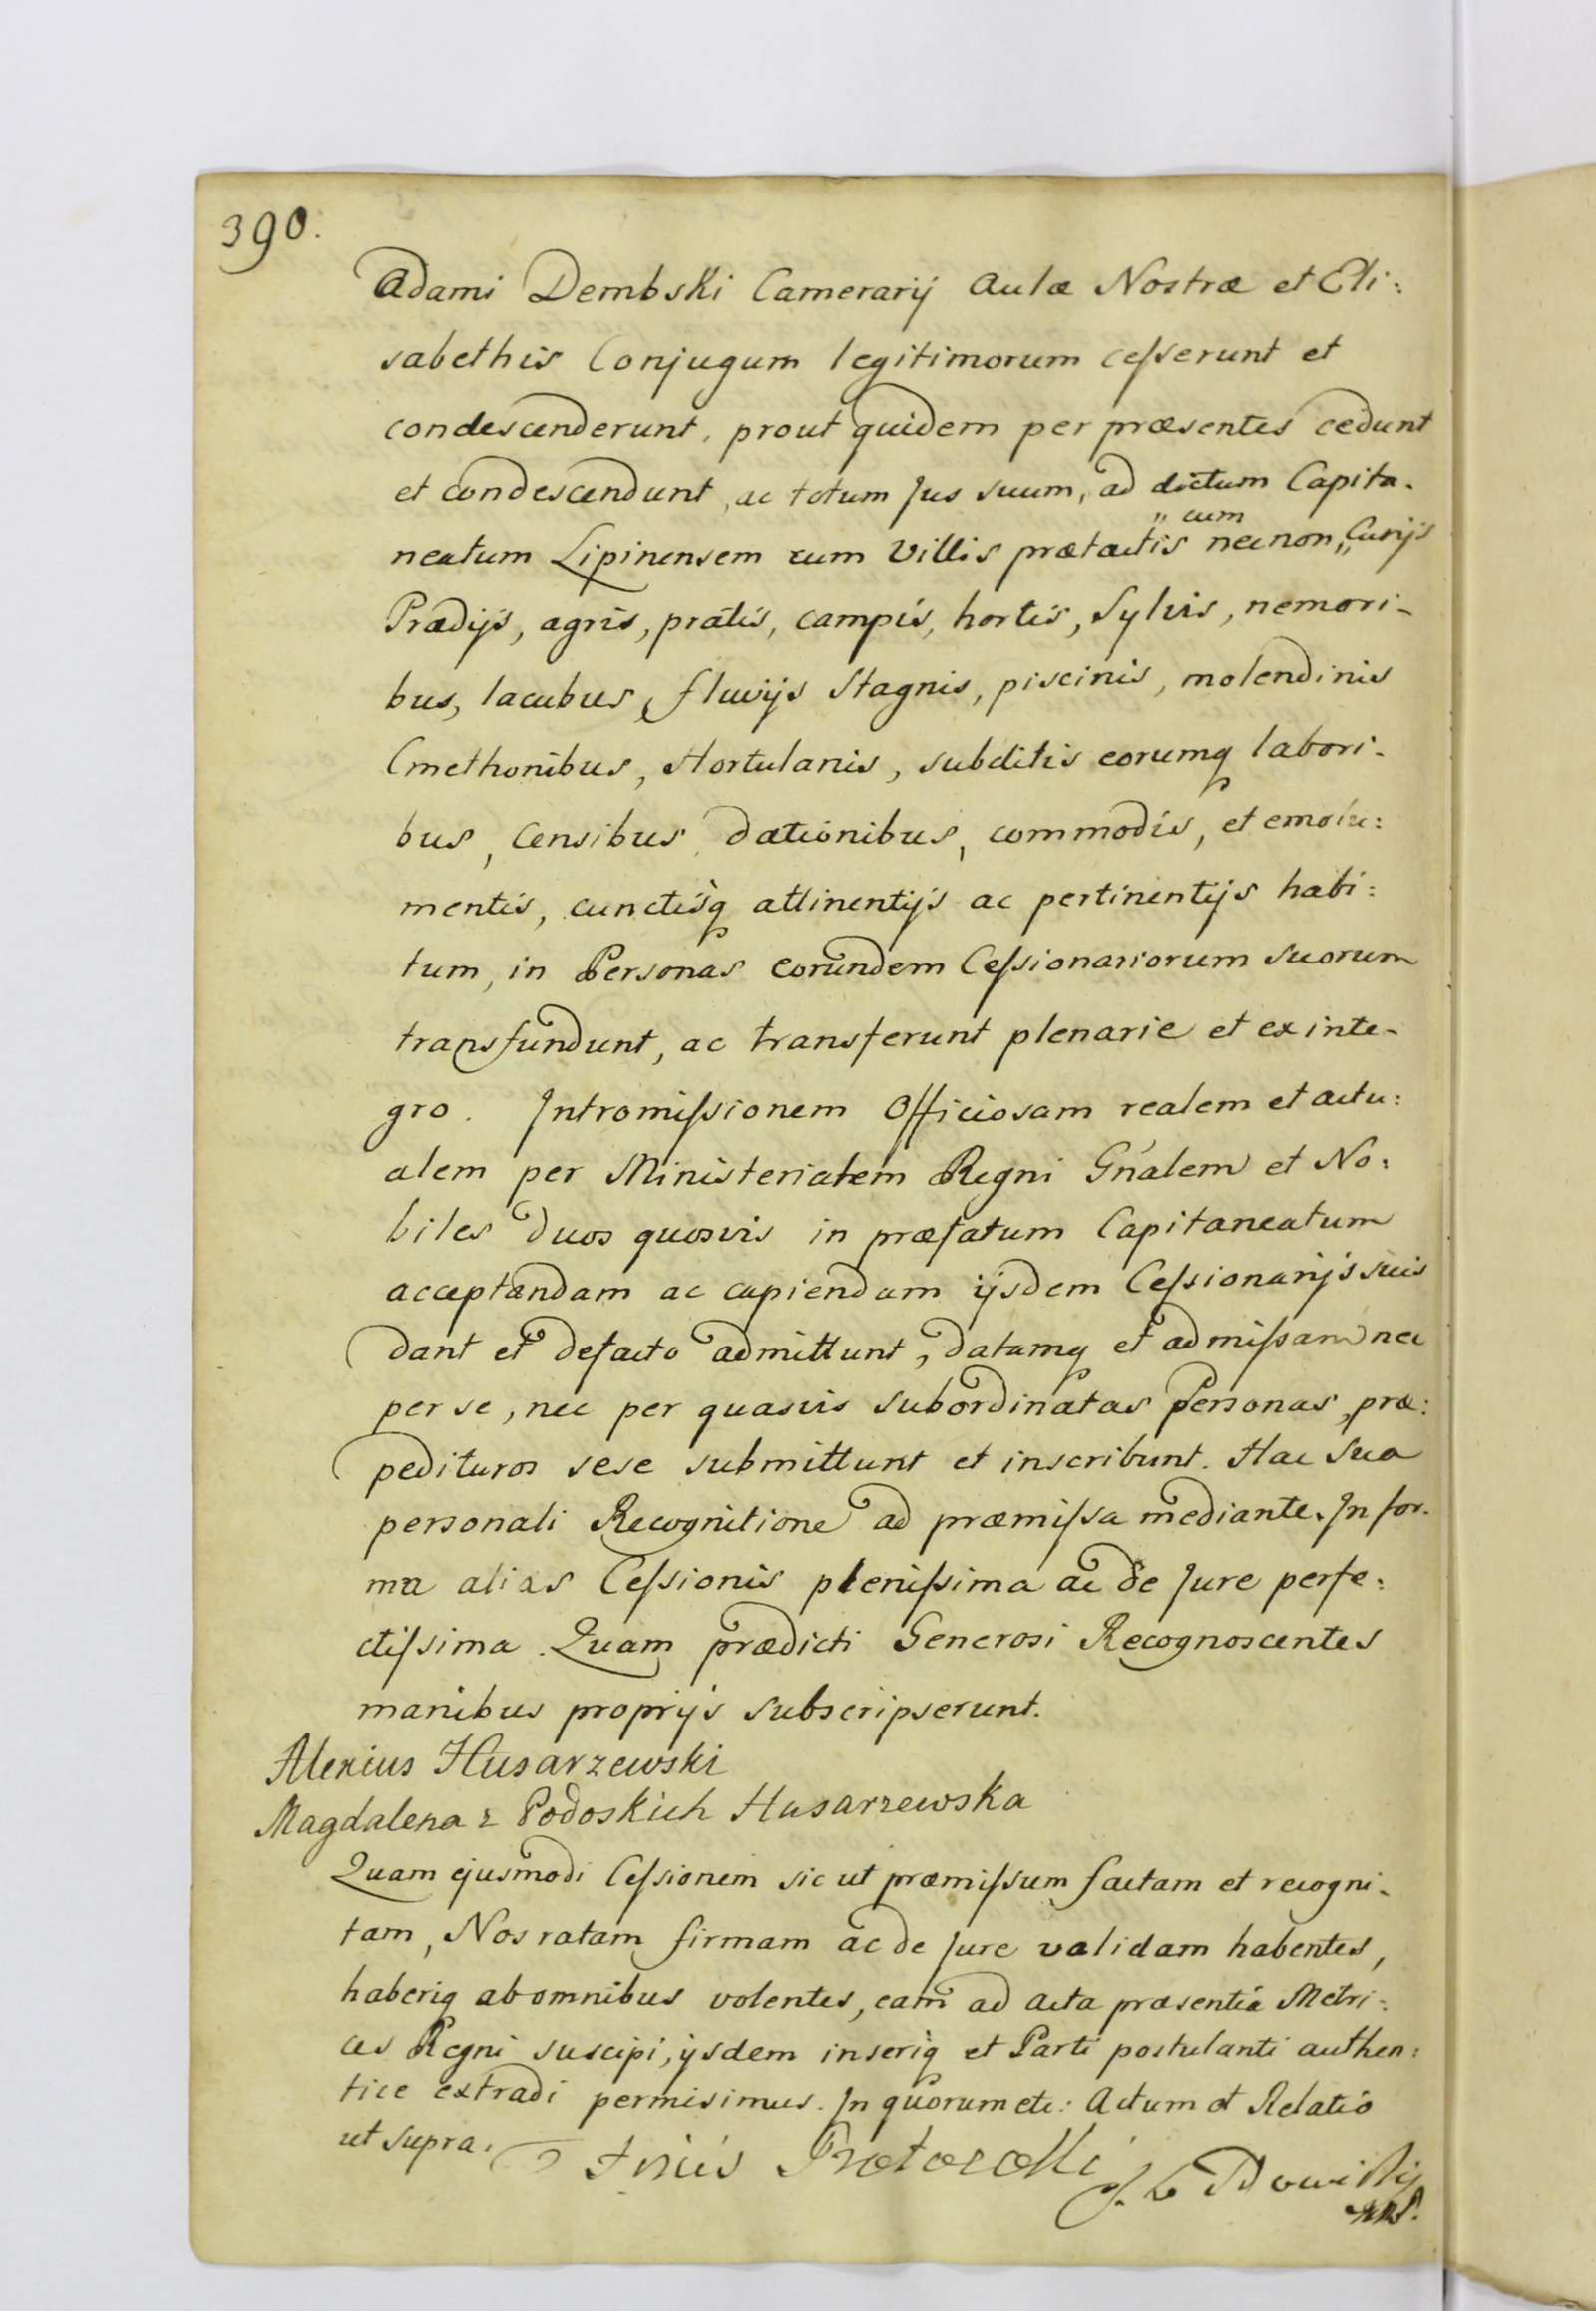 390.
Adami Dembski Camerarij Aulæ Nostræ et Eli:
sabethis Conjugum legitimorum cesserunt et
condescenderunt, prout quidem per præsentes cedunt
et condescendunt, ac totum Jus suum, ad dictum Capita-
„ cum
neatum Lipinensem cum Villis prætactis necnon „ Curijs
Prædijs, agris, pratis, campis, hortis, Sylvis, nemori-
bus, lacubus, fluvijs Stagnis, piscinis, molendinis
Cmethonibus, Hortulanis, subditis eorumq labori-
bus, Censibus, dationibus, commodis, et emolu:
mentis, cunctisq attinentijs ac pertinentijs habi:
tum, in Personas eorundem Cessionariorum suorum
transfundunt, ac transferunt plenarie et ex inte-
gro. Intromissionem Officiosam realem et actu:
alem per Ministerialem Regni Gńalem et No:
biles duos quosvis in præfatum Capitaneatum
acceptandam ac capiendam ijsdem Cessionarijs suis
dant et defacto admittunt, datamq et admissam nec
per se, nec per quasvis subordinatas Personas, præ:
pedituros sese submittunt et inscribunt. Hac sua
personali Recognitione ad præmissa mediante. In for-
ma alias Cessionis plenissima ac de Jure perfe:
ctissima. Quam prædicti Generosi Recognoscentes
manibus proprijs subscripserunt.
Alexius Husarzewski
Magdalena z Podoskich Husarzewska
Quam ejusmodi Cessionem sic ut præmissum factam et recogni-
tam, Nos ratam firmam ac de Jure validam habentes,
haberiq ab omnibus volentes, eam ad Acta præsentia Metri:
ces Regni suscipi, ijsdem inseriq et Parti postulanti authen:
tice extradi permisimus. In quorum etc: Actum et Relatio
ut supra.
Finis Protocolli